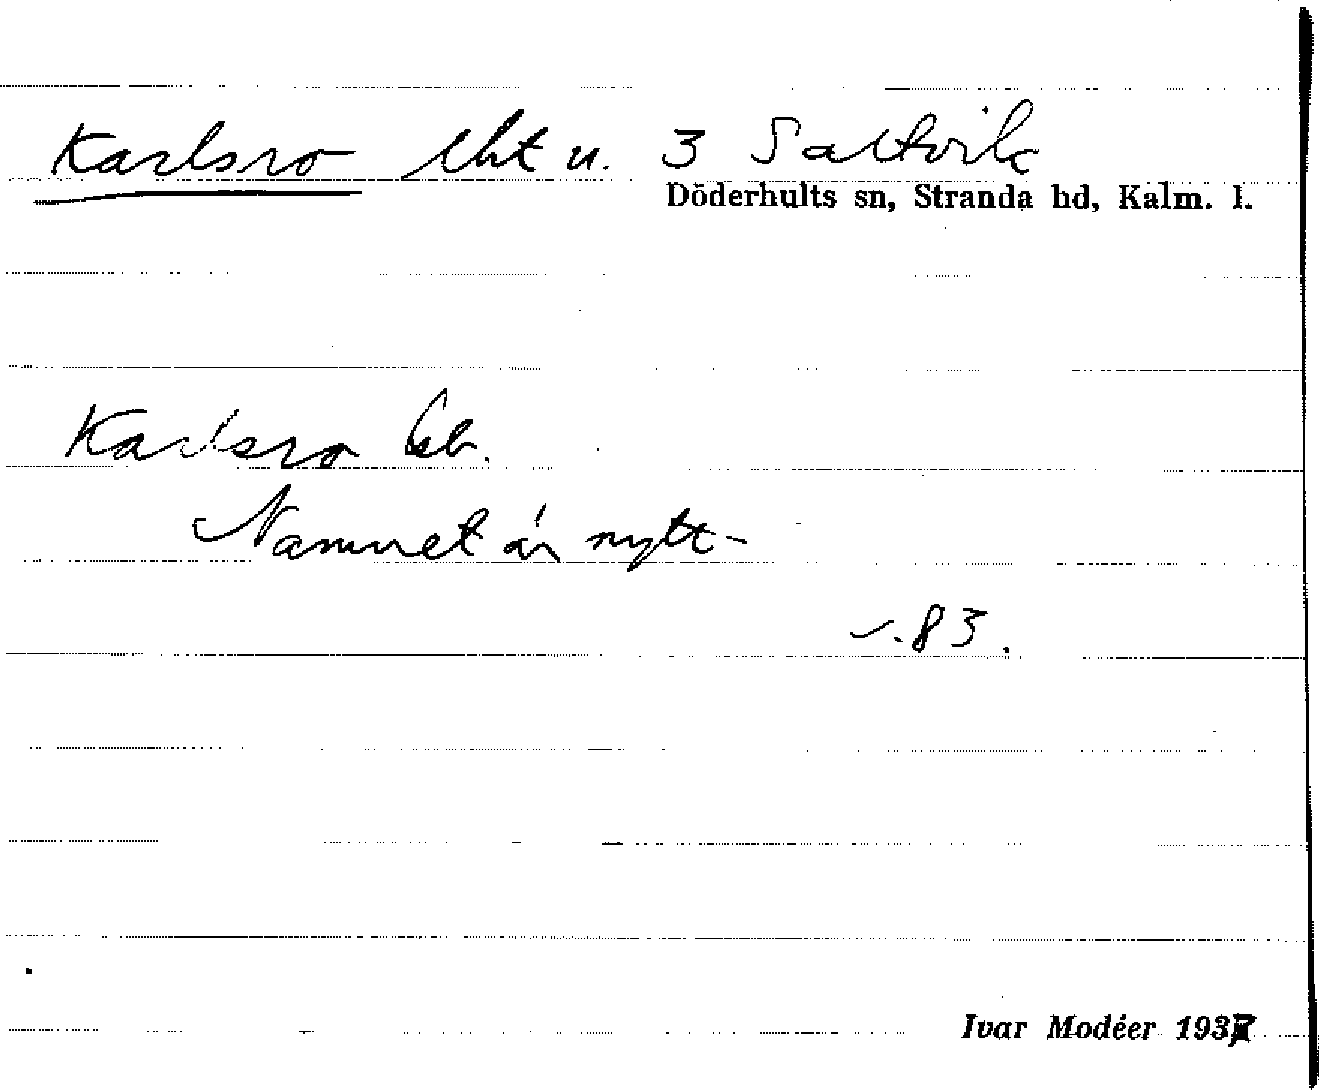 Karlsro lht u. 3 Saltvik
Döderhults sn, Stranda hd, Kalm. l.
Karlsro
Namnet är nytt -
83.
Ivar Modéer 1937